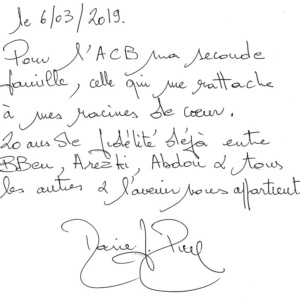 le 6/03/2019.
Pour l'ACB ma seconde
famille, celle qui me rattache
à mes racines de coeur.
20 ans de fidélité déjà entre
BBen, Arezki, Abdou & tous
les autres & l'avenir nous appartient